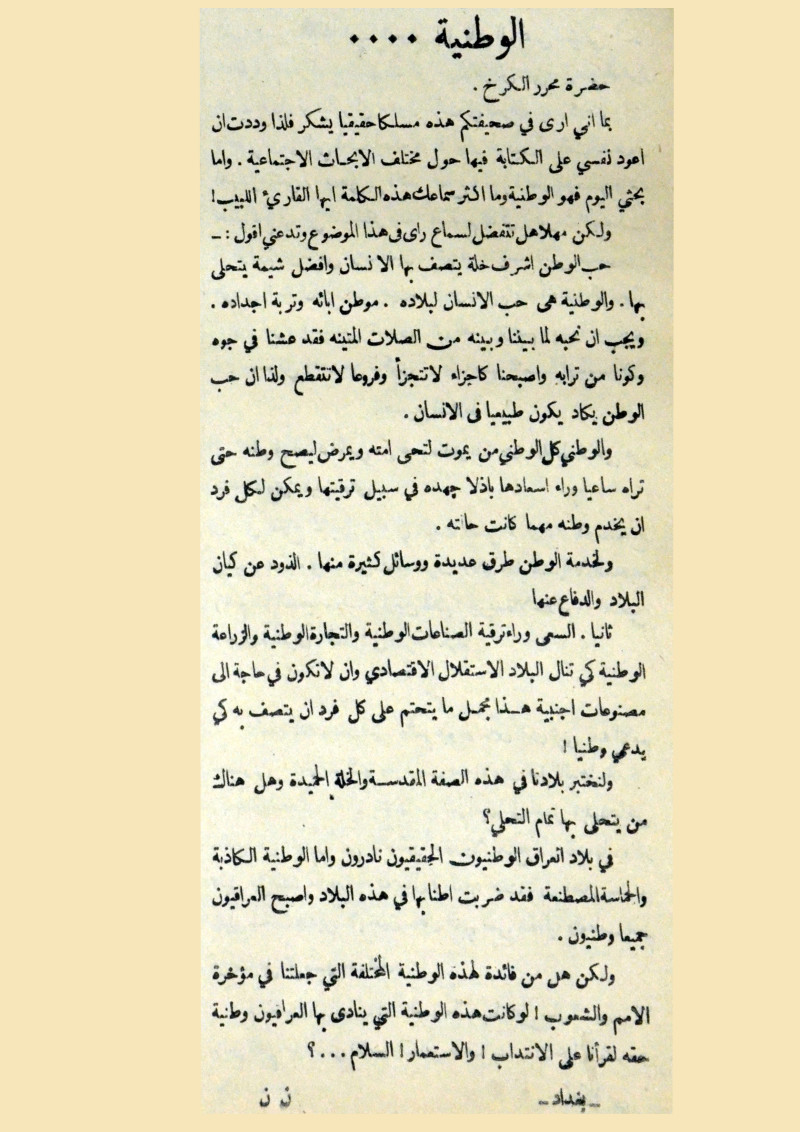 الوطنية ٠٠٠٠
حضرة محرر الكرخ .
بما اني ارى في صحيفتكم هذه مسلكا حقيقيا يشكر فلذا وددت ان
اعود نفسي على الكتابة فيها حول مختلف الابحاث الاجتماعية . واما
بحثي اليوم فهو الوطنية وما اكثر سماعك هذه الكلمة ايها القاريء اللبيب !
ولكن مهلا هل تتفضل لسماع راى فى هذا الموضوع وتدعني اقول : ــ
حب الوطن اشرف خلة يتصف بها الانسان وافضل شيمة يتحلى
بها . والوطنية هى حب الانسان لبلاده . موطن ابائه وتربة اجداده .
ويجب ان نحبه لما بيننا وبينه من الصلات المتينه فقد عشنا في جوه
وكونا من ترابه واصبحنا كاجزاء لاتتجزأ وفروعا لاتتقطع ولذا ان حب
الوطن يكاد يكون طبيعيا فى الانسان .
والوطني كل الوطني من يموت لتحى امته ويمرض ليصح وطنه حتى
تراه ساعيا وراء اسعادها باذلا جهده في سبيل ترقيتها ويمكن لكل فرد
ان يخدم وطنه مهما كانت حالته .
ولخدمة الوطن طرق عديدة ووسائل كثيرة منها . الذود عن كيان
البلاد والدفاع عنها
ثانيا . السعى وراء ترقية الصناعات الوطنية والتجارة الوطنية والزراعة
الوطنية كي تنال البلاد الاستقلال الاقتصادي وان لاتكون في حاجة الى
مصنوعات اجنبية هذا مجمل ما يتحتم على كل فرد ان يتصف به كي
يدعي وطنيا !
ولنختبر بلادنا في هذه الصفة المقدسة والخلة الحميدة وهل هناك
من يتحلى بها تمام التحلي ؟
في بلاد العراق الوطنيون الحقيقيون نادرون واما الوطنية الكاذبة
والحماسة المصطنعة فقد ضربت اطنابها في هذه البلاد واصبح العراقيون
جميعا وطنيون .
ولكن هل من فائدة لهذه الوطنية المختلفة التي جعلتنا في مؤخرة
الامم والشعوب ! لو كانت هذه الوطنية التي ينادى بها العراقيون وطنية
حقه لقرأنا على الانتداب ! والاستعمار ! السلام ... ؟
ــ بغداد ــ ن ن